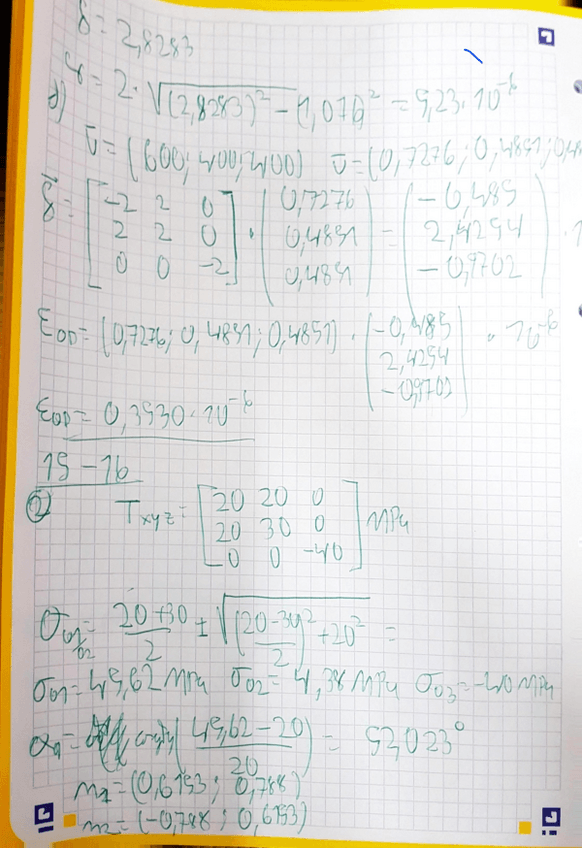 δ = 2,8283
γ = 2·√((2,8283)² - (1,076)² = 5,23·10⁻⁶
f) ū = (600; 400; 400) ū = (0,7276; 0,4851; 0,48
δ̄ = [-2 2 0 · (0,7276 = (-0,485
2 2 0 0,4851 2,4254
0 0 -2] 0,4851) -0,9702)
ε_OD = (0,7276; 0,4851; 0,4851) · (-0,485 · 10⁻⁶
2,4254
-0,9702)
ε_OD = 0,3530·10⁻⁶
15-16
② T_xyz = [20 20 0
20 30 0 MPa
0 0 -40]
σ_01,02 = (20+30)/2 ± √(((20-30)/2)² + 20² =
σ_01 = 45,62 MPa σ_02 = 4,38 MPa σ_03 = -40 MPa
α_1 = arctg((45,62-20)/20) = 52,023°
n_1 = (0,6153; 0,788)
n_2 = (-0,788; 0,6153)